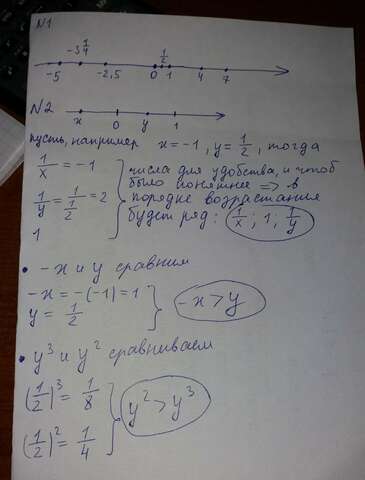 N1
-3 1/4 1/2
-5 -2,5 0 1 4 7
N2
x 0 y 1
пусть, например x = -1, y = 1/2, тогда
1/x = -1
1/y = 1/(1/2) = 2
1
числа для удобства, и чтоб
было понятнее => в
порядке возрастания
будет ряд: 1/x; 1; 1/y
• -x и y сравним
-x = -(-1) = 1
y = 1/2
-x > y
• y³ и y² сравниваем
(1/2)³ = 1/8
(1/2)² = 1/4
y² > y³